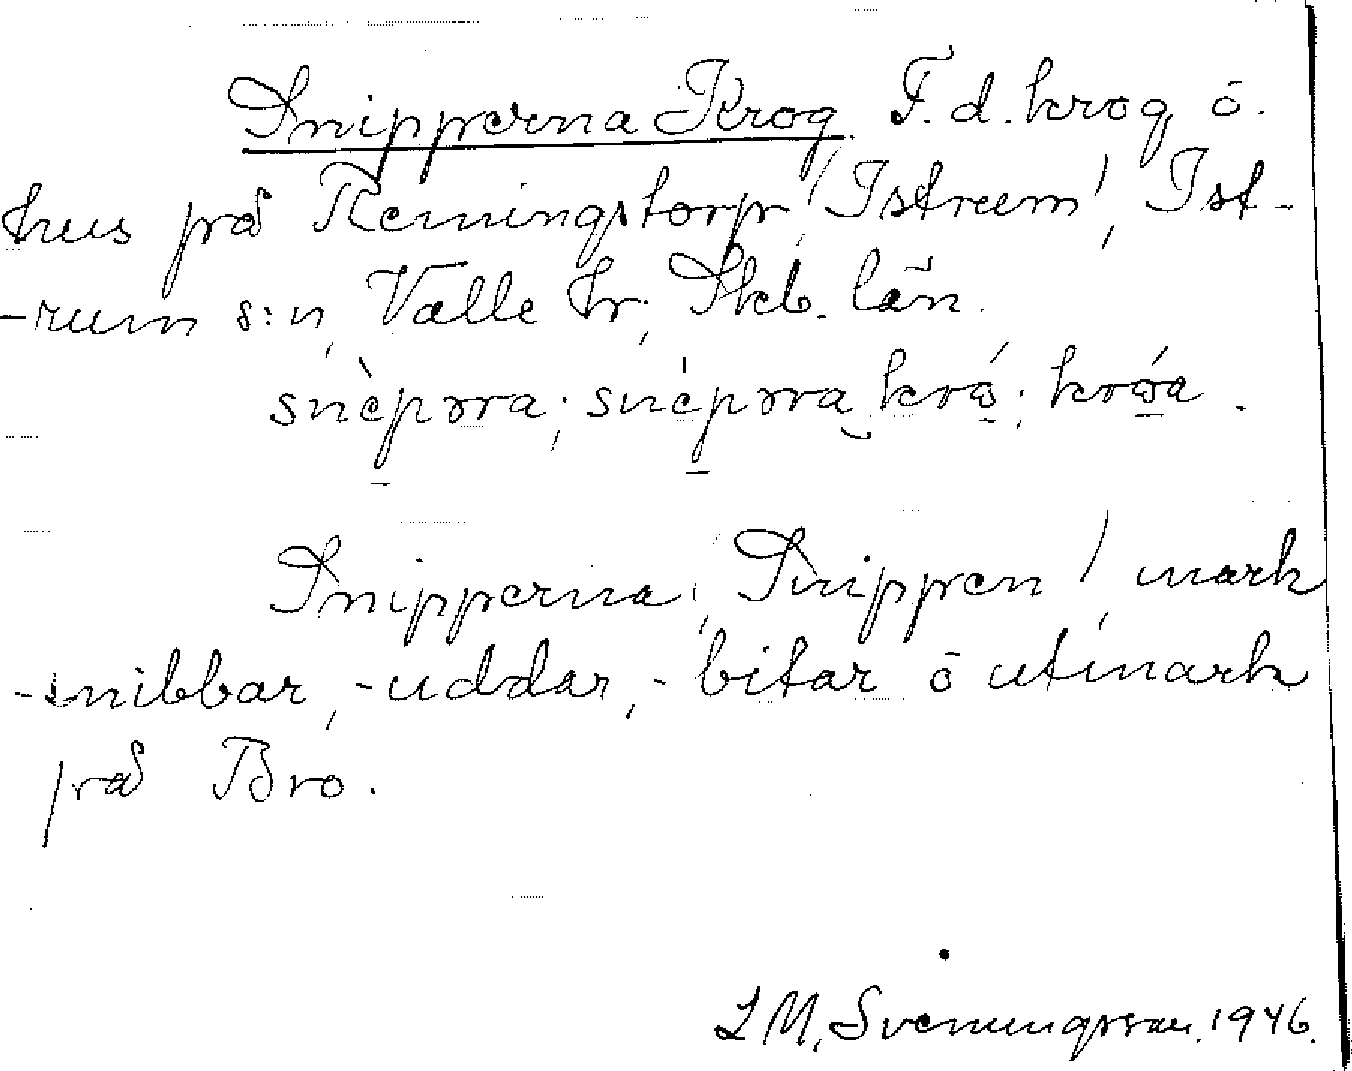 Snipperna Krog. F.d. krog, ō.
hus på Remningstorp (Istrum), Ist-
-rum s:n, Valle hr, Skb. län.
snèpəra; snépəra kró; króa.
Snipperna, (Snippen), mark
-snibbar, -uddar, -bitar ō utmark
på Bro.
L M. Svenungsson. 1946.